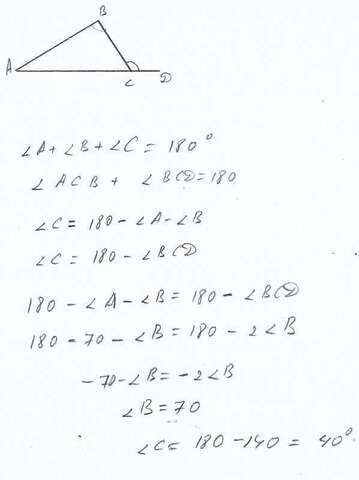 B
A
C
D
∠A + ∠B + ∠C = 180°
∠ACB + ∠BCD = 180
∠C = 180 - ∠A - ∠B
∠C = 180 - ∠BCD
180 - ∠A - ∠B = 180 - ∠BCD
180 - 70 - ∠B = 180 - 2∠B
-70 - ∠B = -2∠B
∠B = 70
∠C = 180 - 140 = 40°